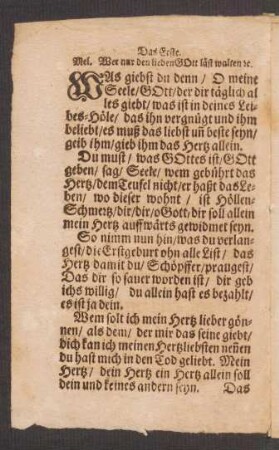 Das Erste.
Mel. Wer nur den lieben GOtt läst walten ꝛc.
WAs giebst du denn / O meine
Seele / GOtt / der dir täglich al
les giebt / was ist in deines Lei-
bes-Höle / das ihn vergnügt und ihm
beliebt / es muß das liebst uñ beste seyn /
geib ihm / gieb ihm das Hertz allein.
Du must / was GOttes ist / GOtt
geben / sag / Seele / wem gebührt das
Hertz / dem Teufel nicht / er haßt das Le-
ben / wo dieser wohnt / ist Höllen-
Schmertz / dir / dir / o Gott / dir soll allein
mein Hertz auffwärts gewidmet seyn.
So nimm nun hin / was du verlan-
gest / die Erstgeburt ohn alle List / das
Hertz damit du / Schöpffer / prangest /
Das dir so sauer worden ist / dir geb
ichs willig / du allein hast es bezahlt /
es ist ja dein.
Wem solt ich mein Hertz lieber gön-
nen / als dem / der mir das seine giebt /
dich kan ich meinen Hertzliebsten neñen
du hast mich in den Tod geliebt. Mein
Hertz / dein Hertz ein Hertz allein soll
dein und keines andern seyn. Das